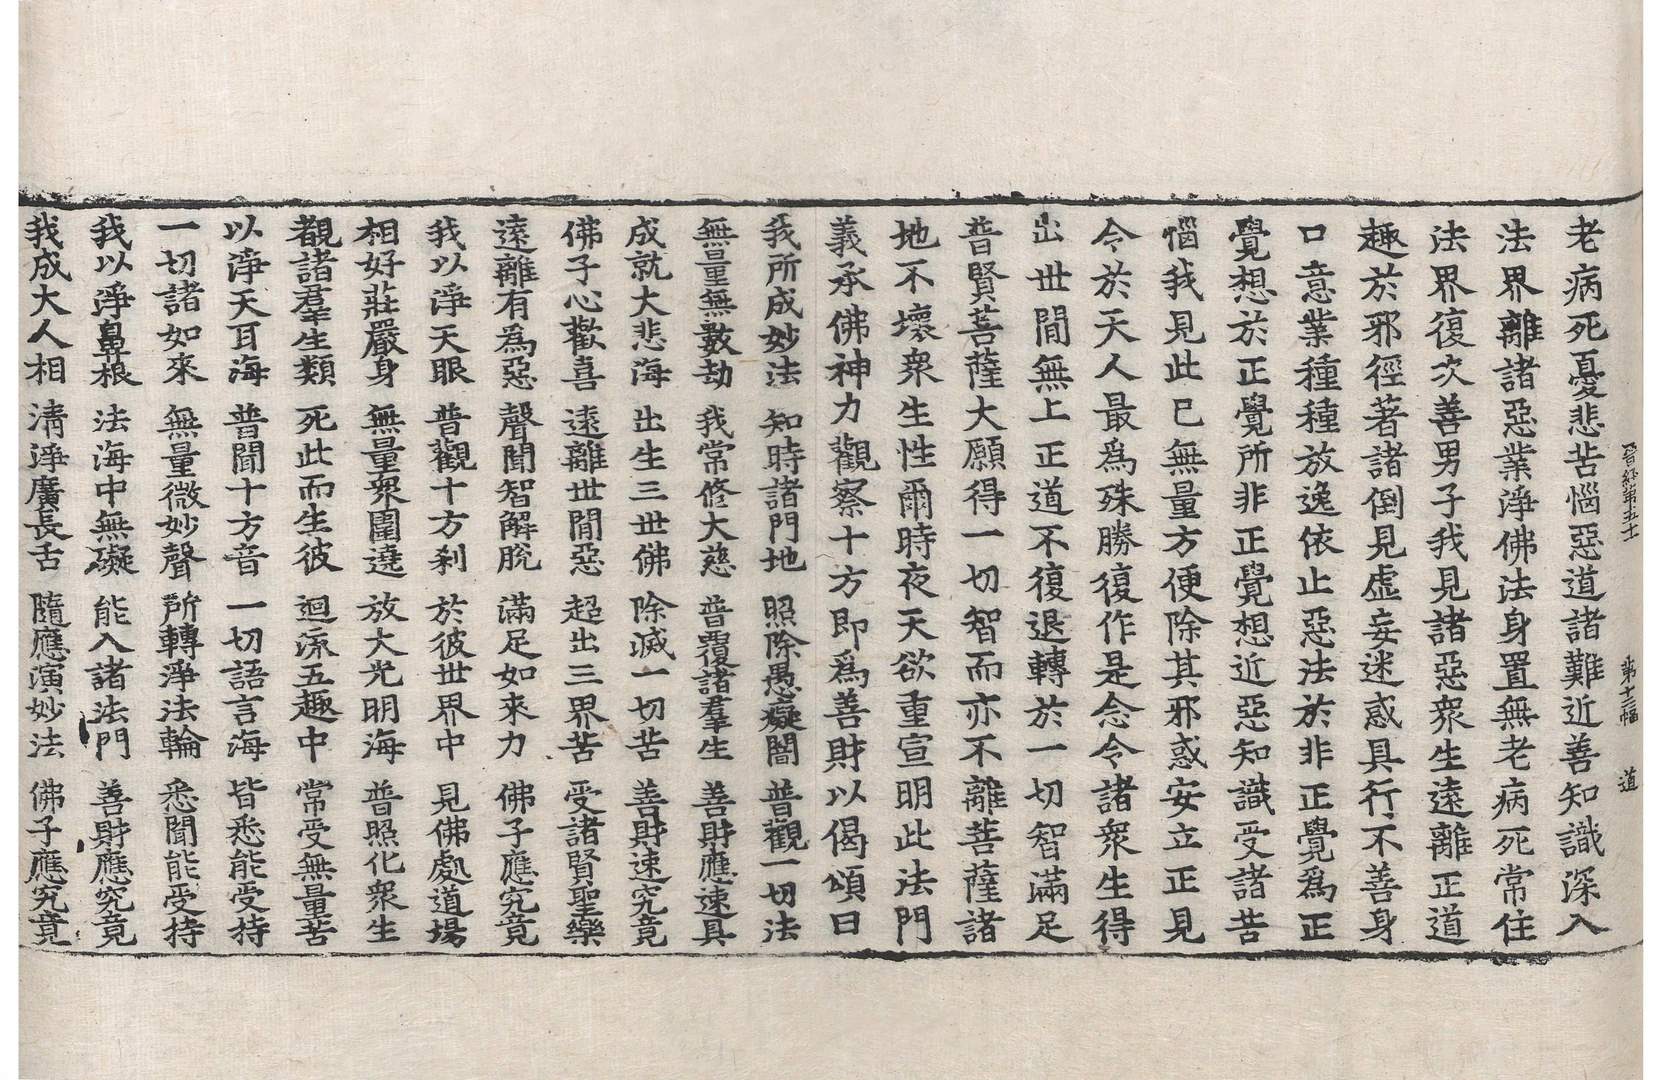 晉經第五十 第十三幅 道
老病死憂悲苦惱惡道諸難近善知識深入
法界離諸惡業淨佛法身置無老病死常住
法界復次善男子我見諸惡衆生遠離正道
趣於邪徑著諸倒見虛妄迷惑具行不善身
口意業種種放逸依止惡法於非正覺爲正
覺想於正覺所非正覺想近惡知識受諸苦
惱我見此已無量方便除其邪惑安立正見
令於天人最爲殊勝復作是念令諸衆生得
出世間無上正道不復退轉於一切智滿足
普賢菩薩大願得一切智而亦不離菩薩諸
地不壞衆生性爾時夜天欲重宣明此法門
義承佛神力觀察十方即爲善財以偈頌曰
我所成妙法 知時諸門地 照除愚癡闇 普觀一切法
無量無數劫 我常修大慈 普覆諸羣生 善財應速具
成就大悲海 出生三世佛 除滅一切苦 善財速究竟
佛子心歡喜 遠離世間惡 超出三界苦 受諸賢聖樂
遠離有爲惡 聲聞智解脫 滿足如來力 佛子應究竟
我以淨天眼 普觀十方刹 於彼世界中 見佛處道場
相好莊嚴身 無量衆圍遶 放大光明海 普照化衆生
觀諸羣生類 死此而生彼 迴流五趣中 常受無量苦
以淨天耳海 普聞十方音 一切語言海 皆悉能受持
一切諸如來 無量微妙聲 所轉淨法輪 悉聞能受持
我以淨鼻根 法海中無礙 能入諸法門 善財應究竟
我成大人相 淸淨廣長舌 隨應演妙法 佛子應究竟